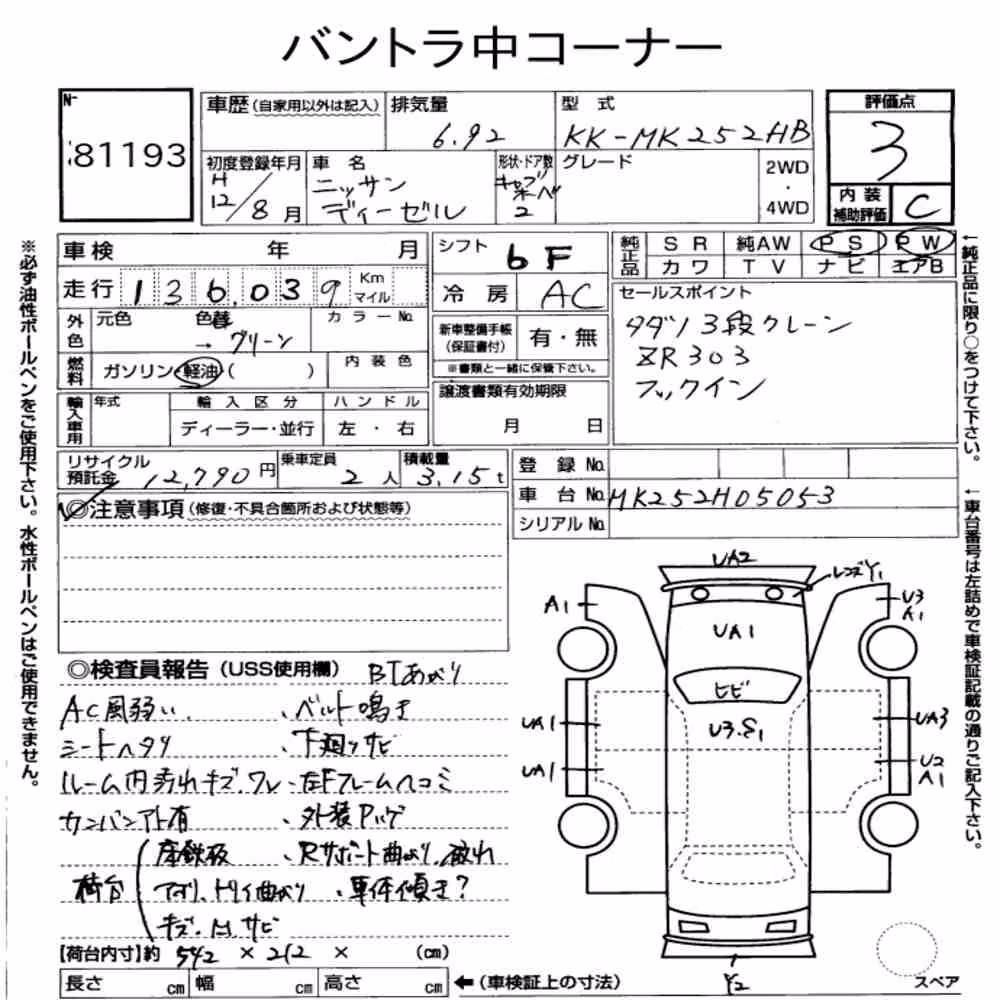 バントラ中コーナー
No 81193
車歴(自家用以外は記入) 排気量 6.92 型式 KK-MK252HB
評価点 3
初度登録年月 H12/8月 車名 ニッサンディーゼル 形状・ドア数 2 グレード 2WD・4WD
内装補助評価 C
車検 年 月
シフト 6F
純正品 SR 純AW PS PW
カワ TV ナビ エアB
走行 136,039 Km マイル
冷房 AC
セールスポイント
タダノ3段クレーン
ZR303
フックイン
外色 元色 色替 → グリーン カラーNo.
新車整備手帳(保証書付) 有・無
※書類と一緒に保管下さい。
燃料 ガソリン・軽油( ) 内装色
譲渡書類有効期限 月 日
輸入車用 年式 輸入区分 ハンドル
ディーラー・並行 左・右
リサイクル預託金 12,790円 乗車定員 2人 積載量 3.15t
登録No.
車台No. MK252H05053
シリアルNo.
◎注意事項(修復・不具合箇所および状態等)
◎検査員報告(USS使用欄) BTあがり
AC風弱い、ベルト鳴き
シートヘタリ、下廻りサビ
ルーム内汚れキズ.ワレ、左Fフレームヘコミ
カンバンアト有、外装Pハゲ
座鉄板、Rサポート曲がり、破れ
荷台 アオリ、トリイ曲がり、車体傾き?
キズ.凹.サビ
【荷台内寸】約 542 × 212 × (cm)
長さ cm 幅 cm 高さ cm ←(車検証上の寸法)
UA2
レンズY1
A1
U3
A1
UA1
ヒビ
U3.S1
UA1
UA3
UA1
U2
A1
Y2
スペア
※必ず油性ボールペンをご使用下さい。水性ボールペンはご使用できません。
←純正品に限り○をつけて下さい。
←車台番号は左詰めで車検証記載の通りご記入下さい。